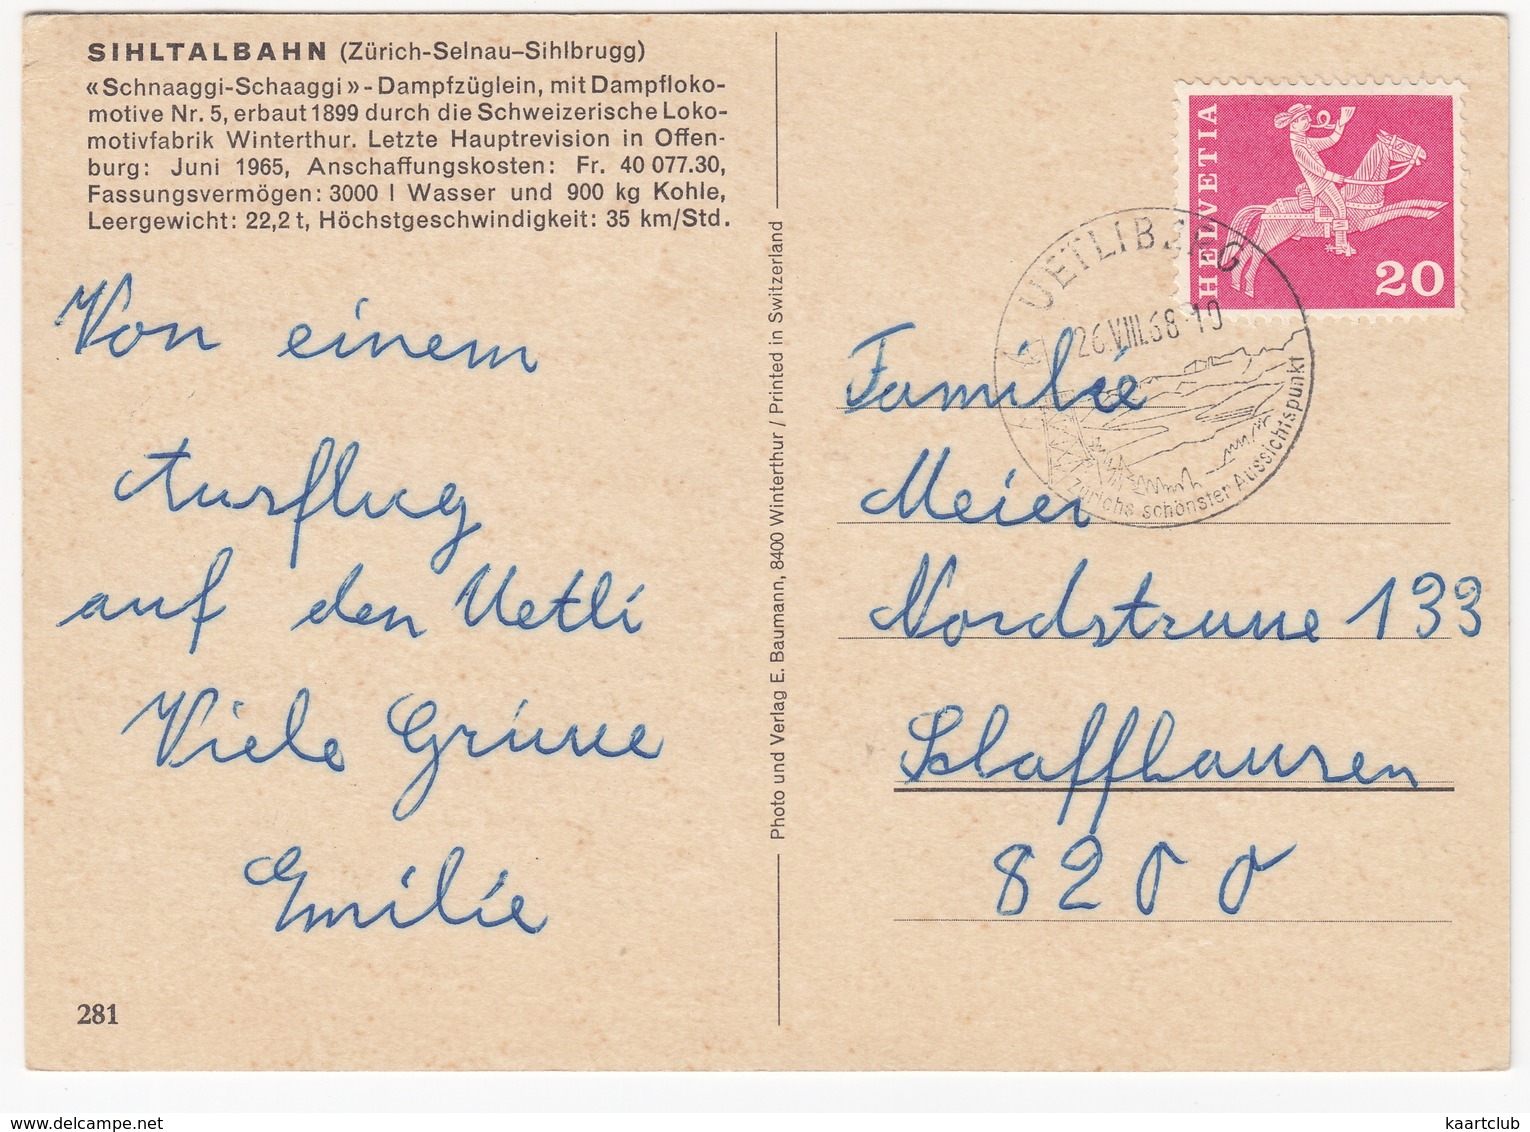 SIHLTALBAHN (Zürich-Selnau–Sihlbrugg)
«Schnaaggi-Schaaggi»-Dampfzüglein, mit Dampfloko-
motive Nr. 5, erbaut 1899 durch die Schweizerische Loko-
motivfabrik Winterthur. Letzte Hauptrevision in Offen-
burg: Juni 1965, Anschaffungskosten: Fr. 40 077.30,
Fassungsvermögen: 3000 l Wasser und 900 kg Kohle,
Leergewicht: 22,2 t, Höchstgeschwindigkeit: 35 km/Std.
Von einem
Ausflug
auf den Uetli
Viele Grüsse
Emilie
281
Photo und Verlag E. Baumann, 8400 Winterthur / Printed in Switzerland
HELVETIA
20
UETLIBERG
26.VIII.68-10
Zürichs schönster Aussichtspunkt
Familie
Meier
Nordstrasse 133
Schaffhausen
8200
www.delcampe.net
kaartclub